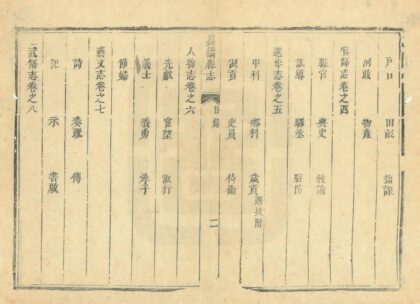 戶口 田賦 鹽課
河政 物產
官師志卷之四
縣官 典史 教諭
訓導 驛丞 駐防
選舉志卷之五
甲科 鄉科 歲貢 選拔附
貢 吏員 侍衛
橋縣志 目錄 二
人物志卷之六
先獻 宦望 淑行
義士 義勇 孝子
節婦
藝文志卷之七
詩 奏疏 傳
記 示 書啟
武備志卷之八